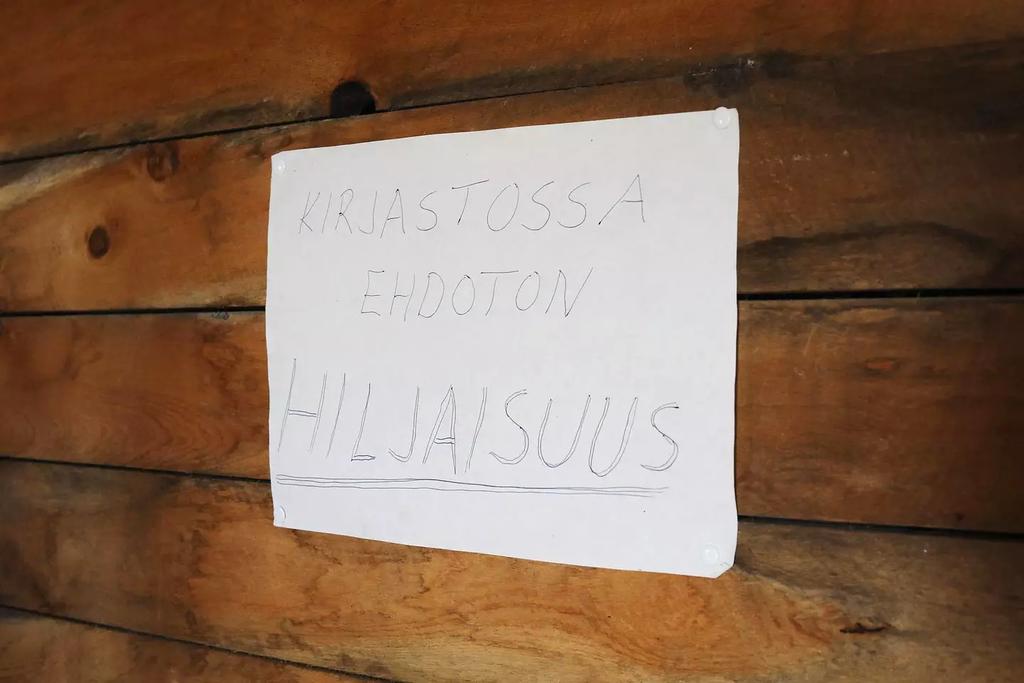 KIRJASTOSSA
EHDOTON
HILJAISUUS